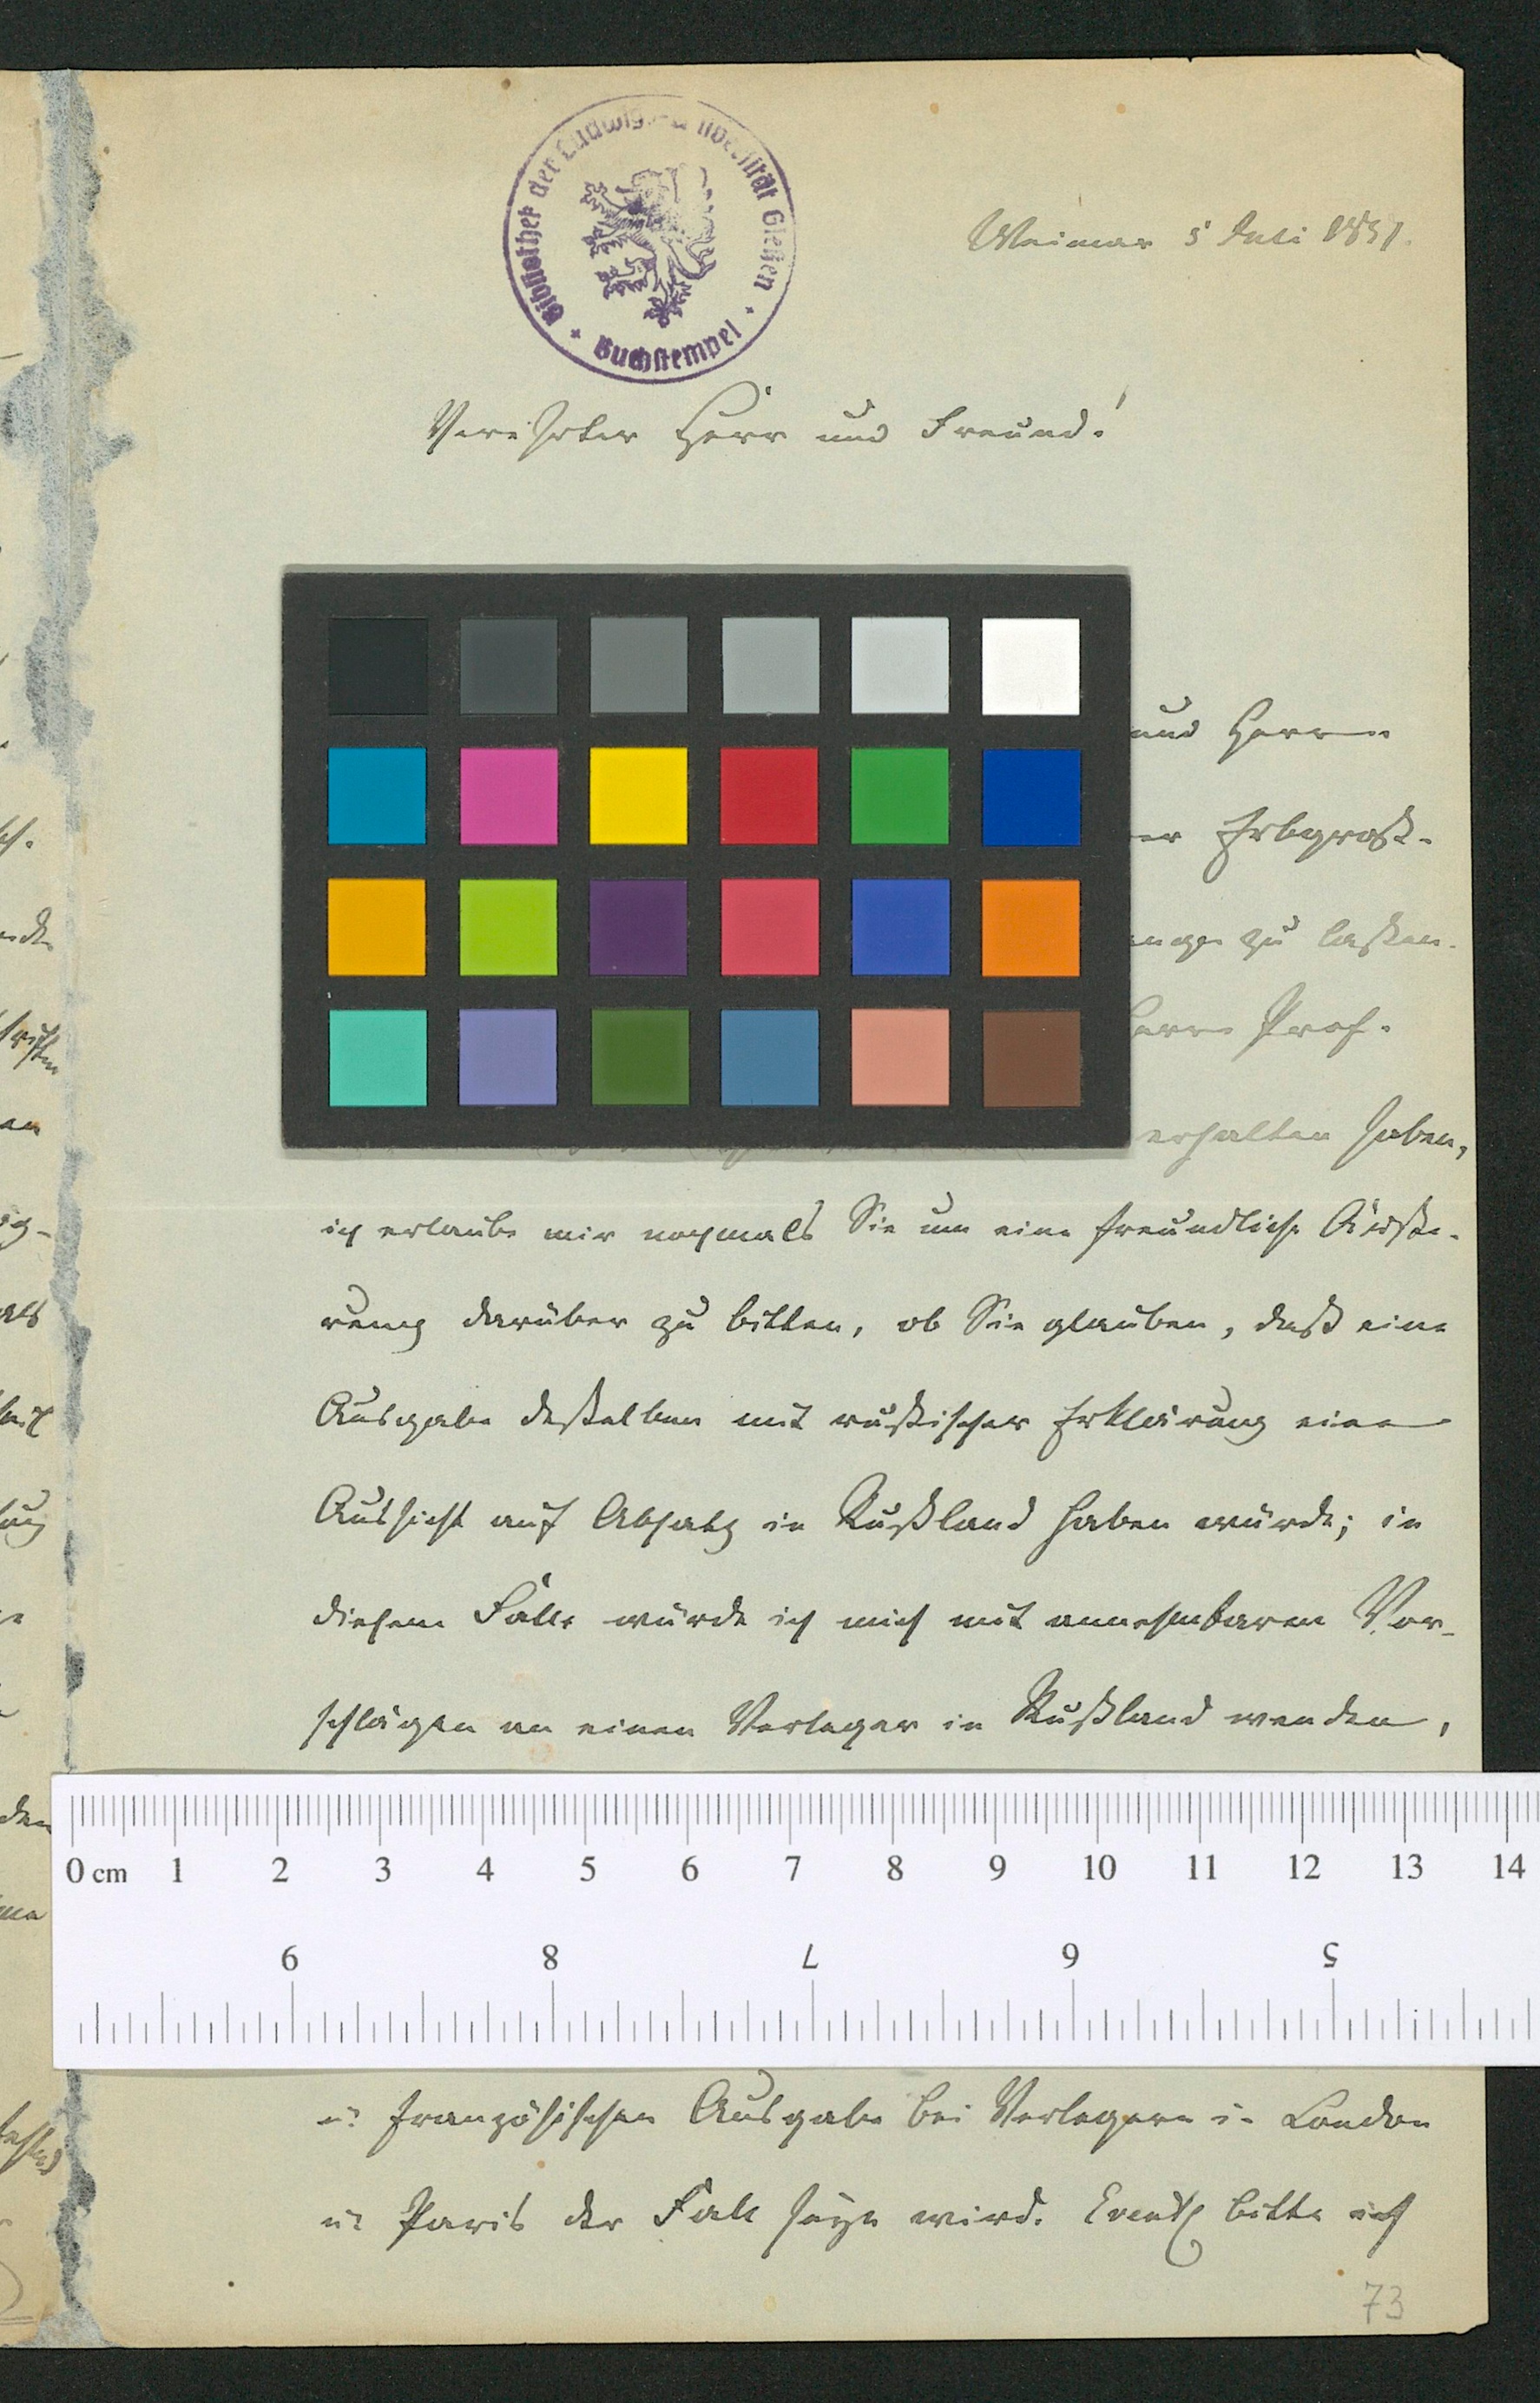 Bibliothek der Ludwigs-Universität Gießen
Buchstempel
Weimar 5 Juli 1851.
Verehrter Herr und Freund!
und Herrn
er Erbgroß-
zu laßen.
Prof.
erhalten haben,
ich erlaube mir nochmals Sie um eine freundliche Äuße-
rung darüber zu bitten, ob Sie glauben, daß eine
Ausgabe deßelben mit rußischer Erklärung eine
Aussicht auf Absatz in Rußland haben würde; in
diesem Falle würde ich mich mit annehmbaren Vor-
schlägen an einen Verleger in Rußland wenden,
0 cm 1 2 3 4 5 6 7 8 9 10 11 12 13 14
9 8 7 6 5
u. französischen Ausgabe bei Verlegern in London
u. Paris der Fall seyn wird. Eventl. bitte ich
73